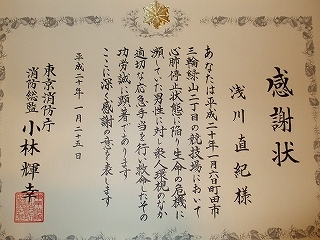 感謝状
浅川直紀様
あなたは平成二十年一月六日町田市
三輪緑山二丁目の競技場において
心肺停止状態に陥り生命の危機に
頻していた男性に対し衆人環視のなか
適切な応急手当を行い救命したその
功労誠に顕著であります
ここに深く感謝の意を表します
平成二十年一月二十五日
東京消防庁
消防総監 小林輝幸